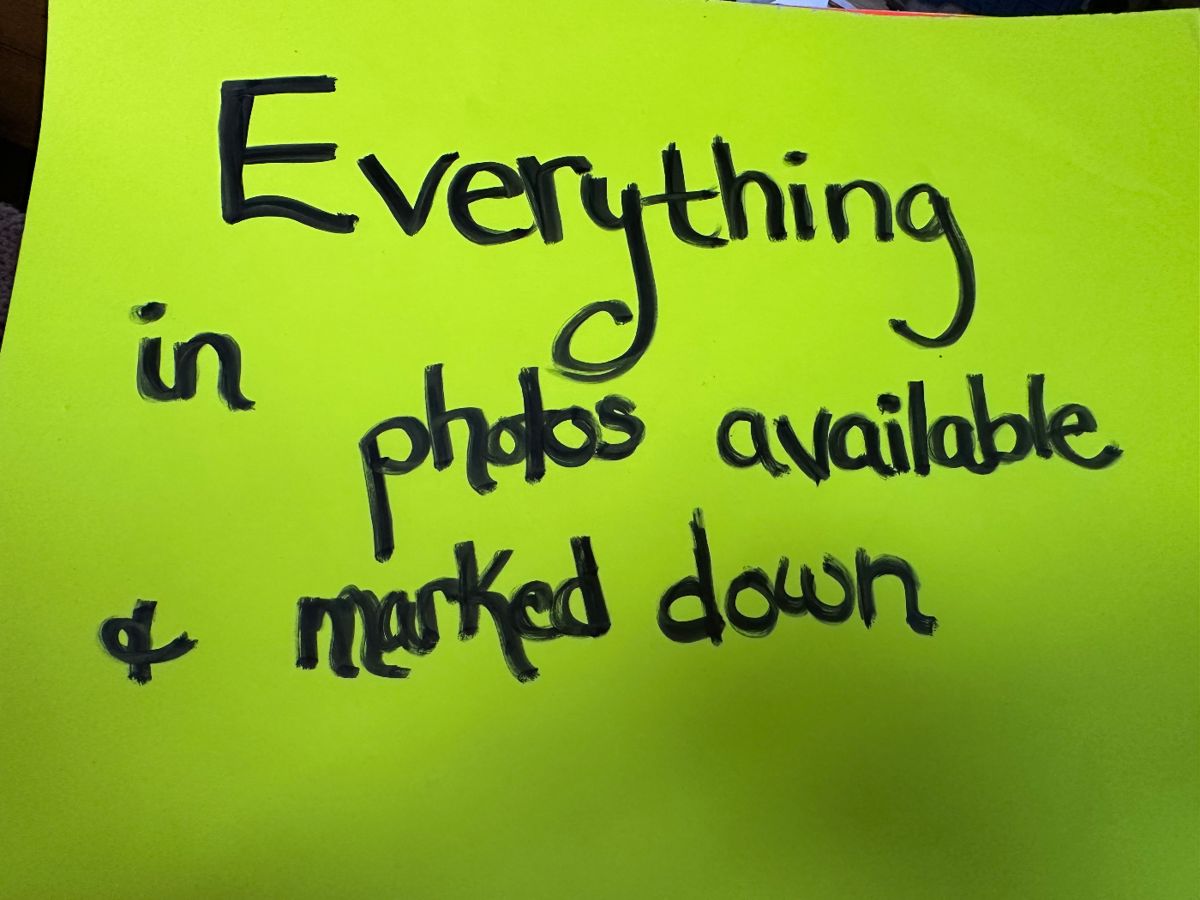 Everything
in photos available
& marked down